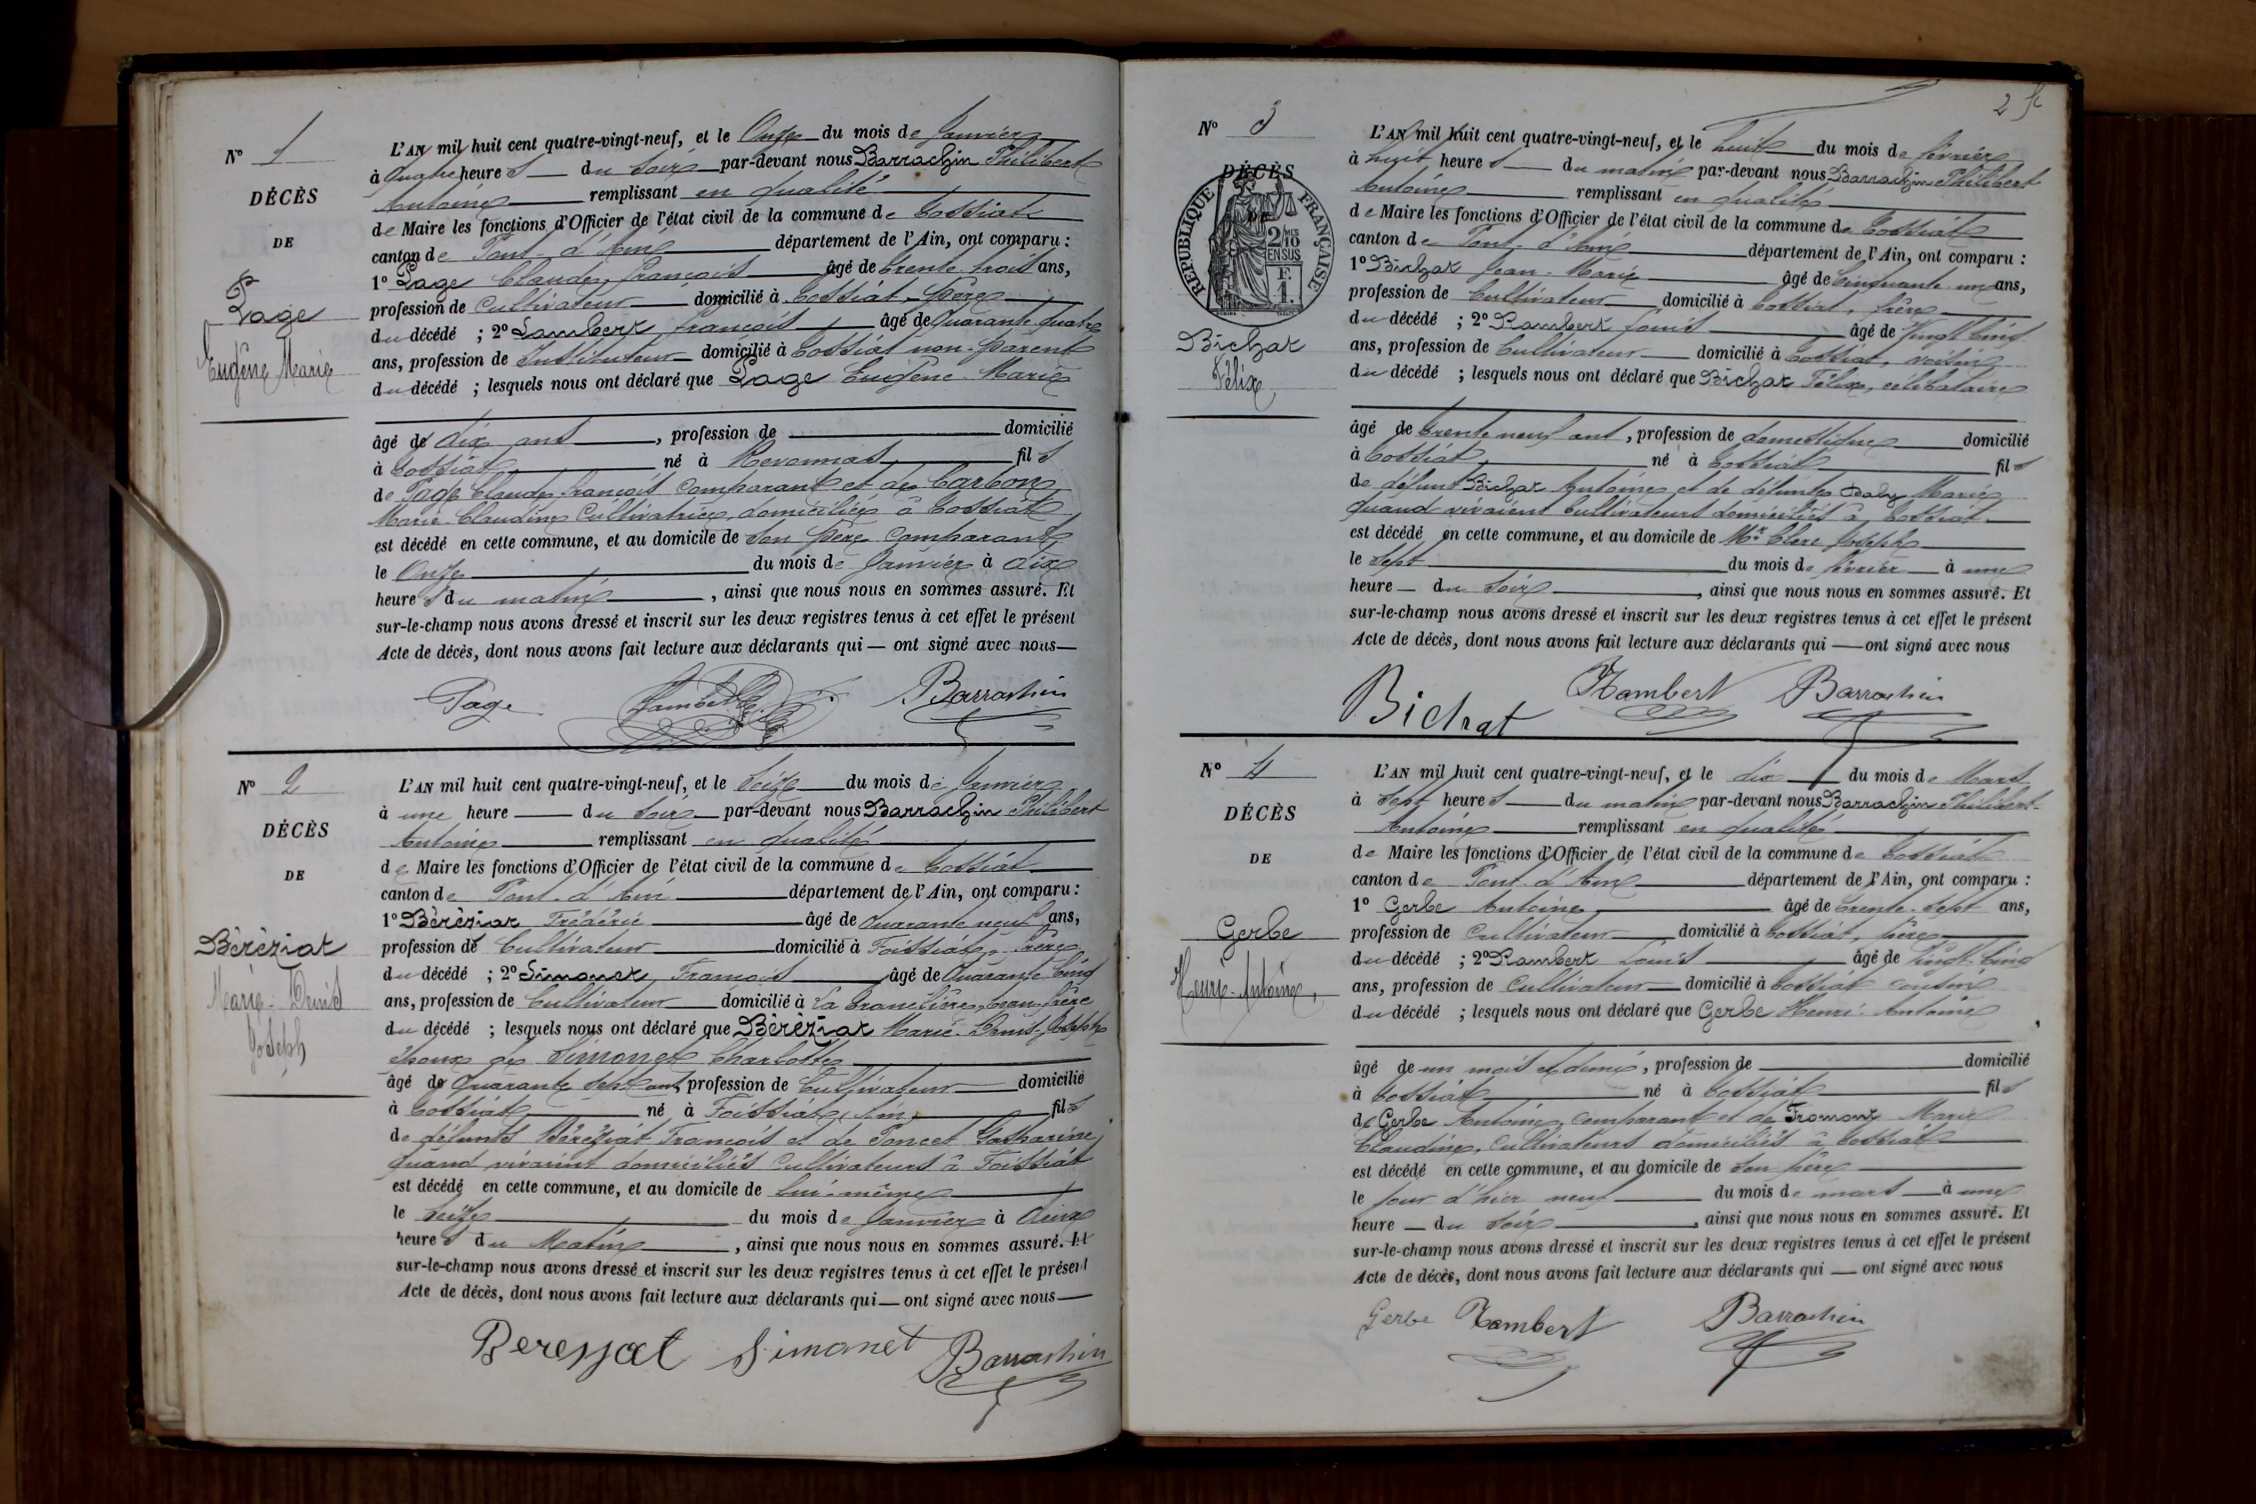 N° 1
DÉCÈS
DE
Page
Eugène Marie
L'AN mil huit cent quatre-vingt-neuf, et le Onze du mois de Janvier
à quatre heures du soir par-devant nous Barrachin Philibert
Antoine remplissant en qualité
de Maire les fonctions d'Officier de l'état civil de la commune de Cossiat
canton de Pont-d'Ain département de l'Ain, ont comparu :
1° Page Claude, françois âgé de trente-trois ans,
profession de Cultivateur domicilié à Cossiat père
du décédé ; 2° Lambert françois âgé de Quarante quatre
ans, profession de Instituteur domicilié à Cossiat non-parent
du décédé ; lesquels nous ont déclaré que Page Eugène Marie
âgé de dix ans, profession de domicilié
à Cossiat né à Revonnas fils
de Page Claude françois comparant et de Carbon
Marie Claudine Cultivatrice, domiciliés à Cossiat
est décédé en cette commune, et au domicile de son père comparant
le Onze du mois de Janvier à dix
heures du matin, ainsi que nous nous en sommes assuré. Et
sur-le-champ nous avons dressé et inscrit sur les deux registres tenus à cet effet le présent
Acte de décès, dont nous avons fait lecture aux déclarants qui — ont signé avec nous
Page Lambert Barrachin
N° 2
DÉCÈS
DE
Béréziat
Marie-Denis
Joseph
L'AN mil huit cent quatre-vingt-neuf, et le Seize du mois de Janvier
à une heure du soir par-devant nous Barrachin Philibert
Antoine remplissant en qualité
de Maire les fonctions d'Officier de l'état civil de la commune de Cossiat
canton de Pont-d'Ain département de l'Ain, ont comparu :
1° Béréziat Frédéric âgé de Quarante neuf ans,
profession de Cultivateur domicilié à Foissiat, frère
du décédé ; 2° Simonet, François âgé de Quarante Cinq
ans, profession de Cultivateur domicilié à La Tranclière, beau-frère
du décédé ; lesquels nous ont déclaré que Béréziat Marie-Denis-Joseph
époux de Simonet Charlotte
âgé de Quarante sept ans, profession de Cultivateur domicilié
à Cossiat né à Foissiat, Ain, fils
de défunts Béréziat François et de Poncet Gatharine
quand vivaient domiciliés Cultivateurs à Foissiat
est décédé en cette commune, et au domicile de lui-même
le seize du mois de Janvier à deux
heures du Matin, ainsi que nous nous en sommes assuré. Et
sur-le-champ nous avons dressé et inscrit sur les deux registres tenus à cet effet le présent
Acte de décès, dont nous avons fait lecture aux déclarants qui — ont signé avec nous
Beressiat Simonet Barrachin
2
N° 3
DÉCÈS
DE
RÉPUBLIQUE FRANÇAISE
2/10 EN SUS
F. 1.
Bichat
Félix
L'AN mil huit cent quatre-vingt-neuf, et le huit du mois de février
à huit heures du matin par-devant nous Barrachin Philibert
Antoine remplissant en qualité
de Maire les fonctions d'Officier de l'état civil de la commune de Cossiat
canton de Pont-d'Ain département de l'Ain, ont comparu :
1° Bichat Jean-Marie âgé de Cinquante un ans,
profession de Cultivateur domicilié à Cossiat, frère
du décédé ; 2° Rambert Louis âgé de Vingt Cinq
ans, profession de Cultivateur domicilié à Cossiat, voisin
du décédé ; lesquels nous ont déclaré que Bichat Félix, célibataire
âgé de trente neuf ans, profession de domestique domicilié
à Cossiat né à Cossiat fils
de défunt Bichat Antoine et de défunte Marie
quand vivaient Cultivateurs domiciliés à Cossiat
est décédé en cette commune, et au domicile de Mr Clerc Joseph
le sept du mois de février à une
heure du soir, ainsi que nous nous en sommes assuré. Et
sur-le-champ nous avons dressé et inscrit sur les deux registres tenus à cet effet le présent
Acte de décès, dont nous avons fait lecture aux déclarants qui — ont signé avec nous
Bichat Rambert Barrachin
N° 4
DÉCÈS
DE
Gerbe
Henri-Antoine,
L'AN mil huit cent quatre-vingt-neuf, et le dix du mois de Mars
à sept heures du matin par-devant nous Barrachin Philibert-
Antoine remplissant en qualité
de Maire les fonctions d'Officier de l'état civil de la commune de Cossiat
canton de Pont-d'Ain département de l'Ain, ont comparu :
1° Gerbe Antoine âgé de trente-sept ans,
profession de Cultivateur domicilié à Cossiat, père
du décédé ; 2° Rambert Louis âgé de Vingt-Cinq
ans, profession de Cultivateur domicilié à Cossiat cousin
du décédé ; lesquels nous ont déclaré que Gerbe Henri-Antoine
âgé de un mois et demi, profession de domicilié
à Cossiat né à Cossiat fils
de Gerbe Antoine, comparant et de Fromont Marie
Claudine, Cultivateurs domiciliés à Cossiat
est décédé en cette commune, et au domicile de son père
le jour d'hier neuf du mois de mars à une
heure du soir, ainsi que nous nous en sommes assuré. Et
sur-le-champ nous avons dressé et inscrit sur les deux registres tenus à cet effet le présent
Acte de décès, dont nous avons fait lecture aux déclarants qui — ont signé avec nous
Gerbe Rambert Barrachin